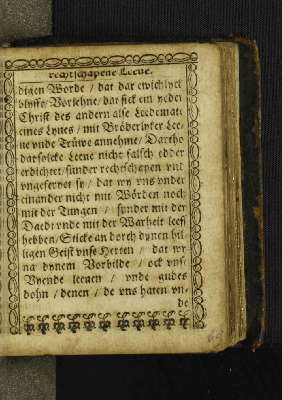 rechtschapene Leeue.
digen Worde / dat dar ewichlyck
blyfft / Vorlehne / dat sick ein yeder
Christ des andern alse Ledemate
eines Lyues / mit Bröderlyker Lee-
ue vnde Trüwe annehme / Dartho
dat solcke Leeue nicht falsch edder
erdichtet / sunder rechtschapen vnd
vngeferuet sy / dat wy vns vnder
einander nicht mit Wörden noch
mit der Tungen / sunder mit der
Daedt vnde mit der Warheit leeff
hebben / Sticke an dorch dynen hil-
ligen Geist vnse Herten / dat wy
na dynem Vorbilde / ock vnse
Vyende leeuen / vnde gudes
dohn / denen / de vns haten vn-
de